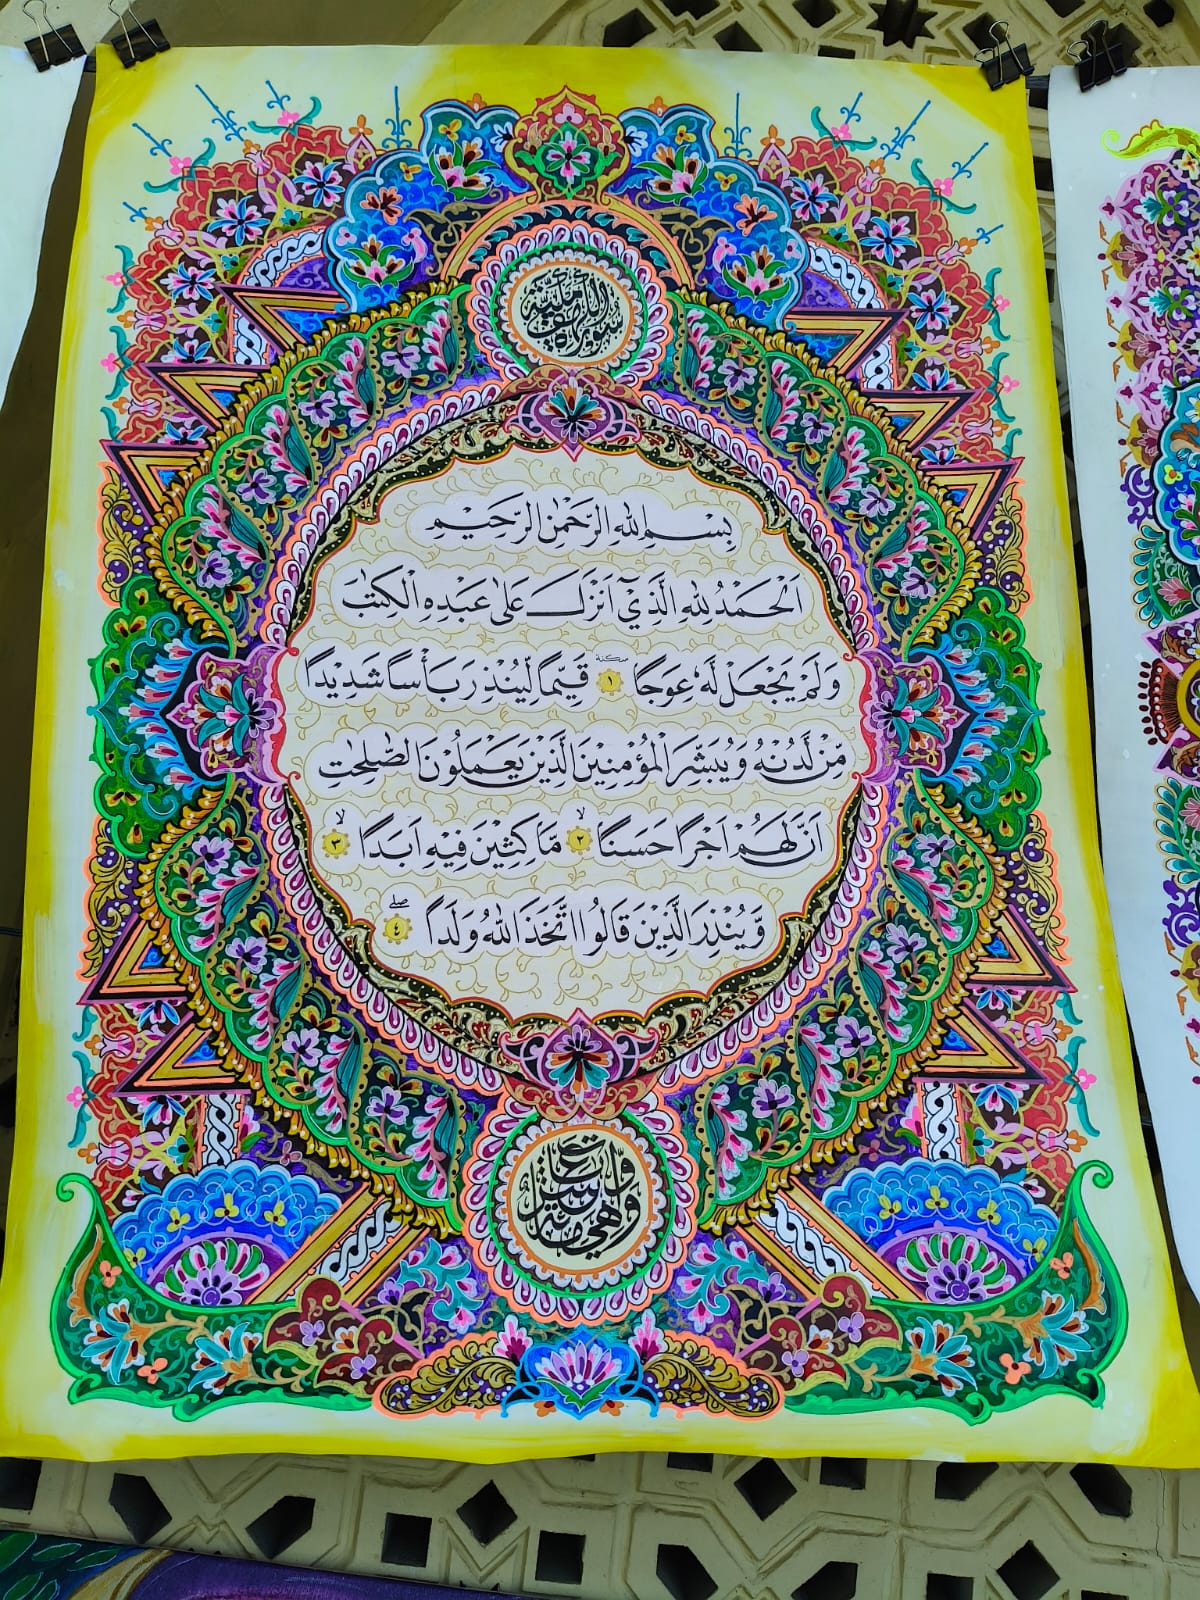 سورة الكهف مكية
بِسْمِ اللهِ الرَّحْمٰنِ الرَّحِيْمِ
اَلْحَمْدُ لِلّٰهِ الَّذِيْٓ اَنْزَلَ عَلٰى عَبْدِهِ الْكِتٰبَ
وَلَمْ يَجْعَلْ لَّهٗ عِوَجًا سكتة ١ قَيِّمًا لِّيُنْذِرَ بَأْسًا شَدِيْدًا
مِّنْ لَّدُنْهُ وَيُبَشِّرَ الْمُؤْمِنِيْنَ الَّذِيْنَ يَعْمَلُوْنَ الصّٰلِحٰتِ
اَنَّ لَهُمْ اَجْرًا حَسَنًا ۙ ٢ مَّاكِثِيْنَ فِيْهِ اَبَدًا ۙ ٣
وَّيُنْذِرَ الَّذِيْنَ قَالُوا اتَّخَذَ اللّٰهُ وَلَدًا ۖ ٤
وهي مائة